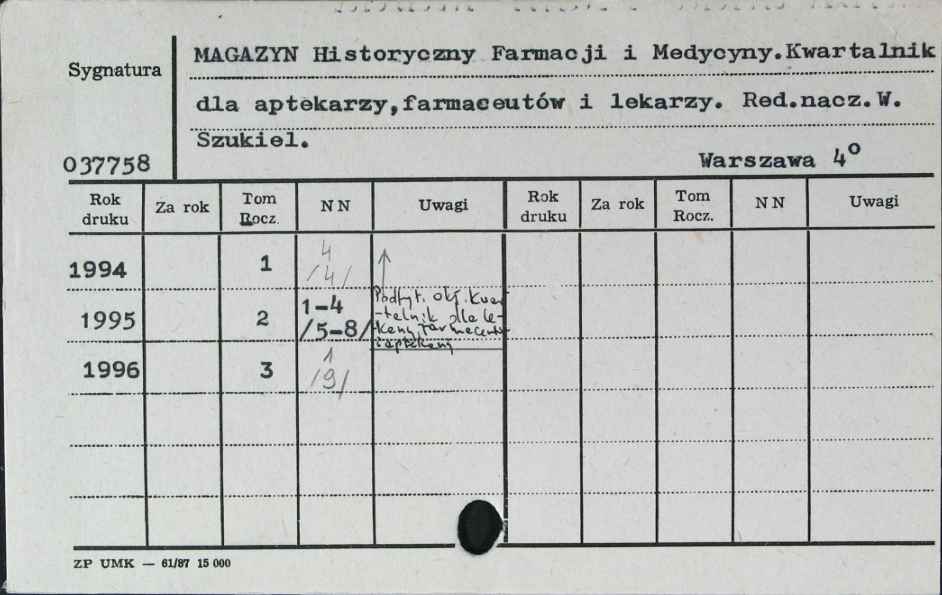 MAGAZYN Historyczny Farmacji i Medycyny.Kwartalnik
Sygnatura
dla aptekarzy,farmaceutów i lekarzy. Red.nacz.W.
Szukiel.
037758
Warszawa 4⁰
Rok druku Za rok Tom Rocz. NN Uwagi Rok druku Za rok Tom Rocz. NN Uwagi
1994 1 4 /4/ ↑
1995 2 1-4 /5-8/
Podtyt. obj. Kwar
-talnik dla le-
karzy, farmaceut
i aptekarzy
1996 3 1 /9/
ZP UMK — 61/87 15 000